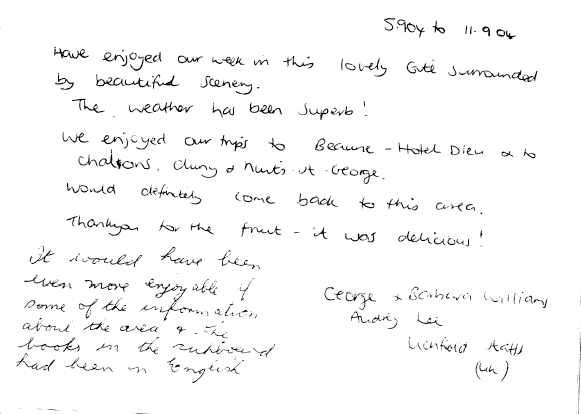 5.9.04 to 11.9.04
Have enjoyed our week in this lovely Gite surrounded
by beautiful scenery.
The weather has been superb!
We enjoyed our trips to Beaune - Hotel Dieu & to
Chalons, Cluny & Nuits St George.
Would definitely come back to this area.
Thankyou for the fruit - it was delicious!
It would have been
even more enjoyable if
some of the information
about the area & the
books in the cupboard
had been in English
George & Barbara Williams
Audrey Lee
Lichfield Staffs
(UK)